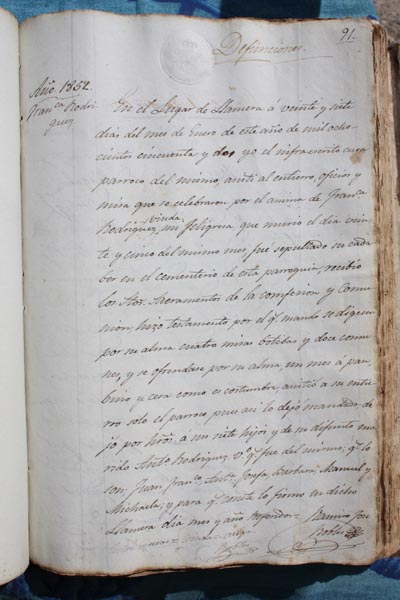 91.
Defunciones.
Año 1852.
Fran.ca Rodri
guez
En el Lugar de Llamera á veinte y siete
dias del mes de Enero de este año de mil ocho
cientos cincuenta y dos yo el infraescrito cura
parroco del mismo, asistí al entierro, oficios y
misa que se celebraron por el anima de Fran.ca
viuda
Rodriguez, mi feligresa que murió el dia vein
te y cinco del mismo mes, fue sepultado su cada
ber en el cementerio de esta parroquia, recibio
los Stos. Sacramentos de la comfesion y Comu
nion, hizo testamento por el q.e mando se digesen
por su alma cuatro misas botibas y doce comu
nes, y se ofrendase por su alma un mes á pan
bino y cera como es costumbre, asistió a su entie
rro solo el parroco pues asi lo dejó mandado, de
jo por hijos á
siete hijos y de su difunto ma
rido Ant.o Rodriguez v.o q.e fue del mismo; q.e lo
son, Juan, Fran.co, Ant.a, Josefa, Barbara, Manuel y
Michaela; y para q.e conste lo firmo en dicho
Llamera dia mes y año
Ramiro Jose
Robles